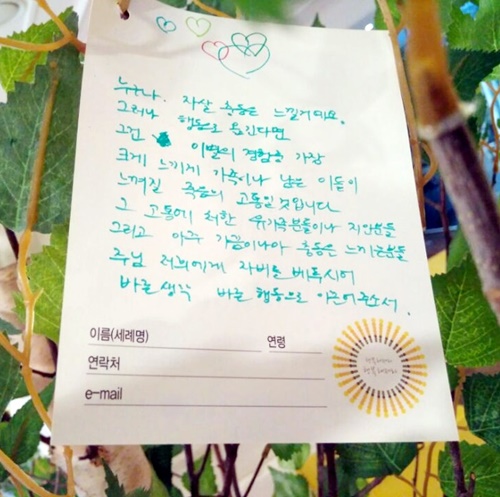 누구나. 자살 충동은 느낄거예요.
그러나 행동으로 옮긴다면
그건 이별의 경험중 가장
크게 느끼게 가족이나 남은 이들이
느껴질 죽음의 고통일것입니다
그 고통에 처한 유가족분들이나 지인분들
그리고 아주 가끔이나마 충동을 느끼는분들
주님 저희에게 자비를 베푸시어
바른 생각 바른 행동으로 이끌어주소서.
이름(세례명)
연령
연락처
e-mail